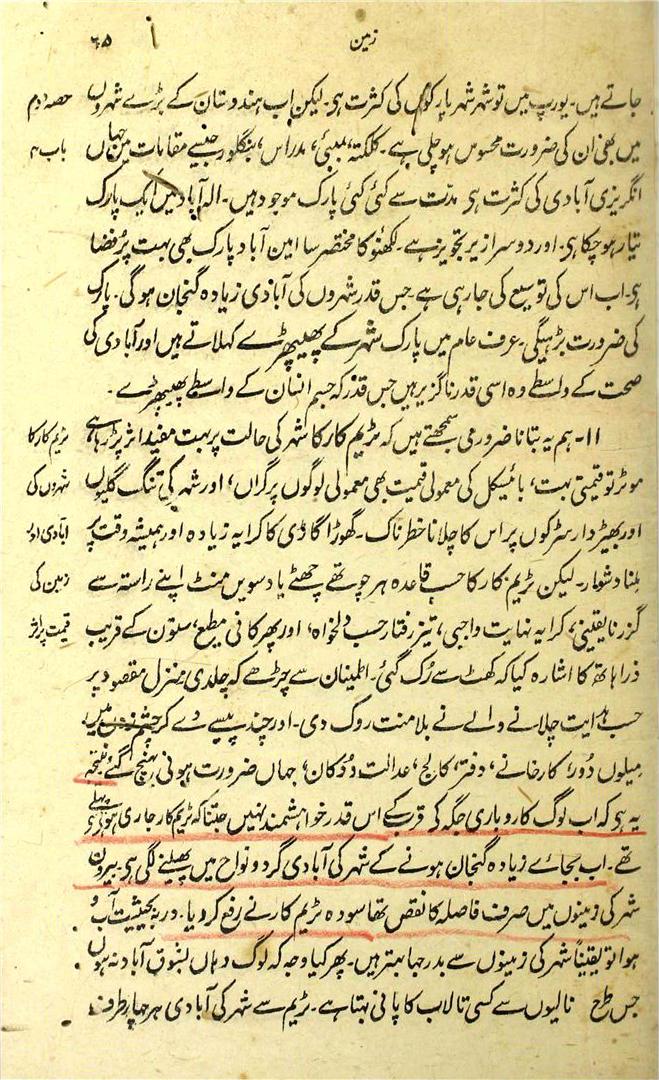 زمین
۶۵
جاتے ہیں۔ یورپ میں تو شہر شہر پارکوں کی کثرت ہی۔ لیکن اب ہندوستان کے بڑے شہروں
حصہ دوم
میں بھی ان کی ضرورت محسوس ہو چلی ہے۔ کلکتہ، بمبئی، مدراس، بنگلور جیسے مقامات میں جہاں
باب ۴
انگریزی آبادی کی کثرت ہی مدت سے کئی کئی پارک موجود ہیں۔ الہ آباد میں ایک پارک
تیار ہو چکا ہی۔ اور دوسرا زیر تجویز ہے۔ لکھنؤ کا مختصر سا امین آباد پارک بھی بہت پُر فضا
ہی۔ اب اس کی توسیع کی جا رہی ہے۔ جس قدر شہروں کی آبادی زیادہ گنجان ہوگی۔ پارک
کی ضرورت بڑہیگی۔ عرف عام میں پارک شہر کے پھیپھڑے کہلاتے ہیں اور آبادی کی
صحت کے واسطے وہ اسی قدر ناگزیر ہیں جس قدر کہ جسم انسان کے واسطے پھیپھڑے۔
۱۱۔ ہم یہ بتانا ضروری سمجھتے ہیں کہ ٹریم کار کا شہر کی حالت پر بہت مفید اثر پڑ رہا ہے
ٹریم کار کا
موٹر تو قیمتی بہت، بائیسکل کی معمولی قیمت بھی معمولی لوگوں پر گراں، اور شہر کی تنگ گلیوں
شہروں کی
اور بھیڑ دار سڑکوں پر اس کا چلانا خطرناک۔ گھوڑا گاڈی کا کرایہ زیادہ اور ہمیشہ وقت پر
آبادی اور
ملنا دشوار۔ لیکن ٹریم کار کا حسب قاعدہ ہر چوتھے چھٹے یا دسویں منٹ اپنے راستہ سے
زمین کی
گزرنا یقینی، کرایہ نہایت واجبی، تیز رفتار حسب دلخواہ، اور پھر کافی مطیع، ستون کے قریب
قیمت پر اثر
ذرا ہاتھ کا اشارہ کیا کہ کھٹ سے رُک گئی۔ اطمینان سے چڑھے کہ چلدی منزل مقصود پر
حسب ہدایت چلانے والے نے بلا منت روک دی۔ اور چند پیسے دے کر چشم زدن میں
میلوں دُور، کارخانے، دفتر، کالج، عدالت و دُکان، جہاں ضرورت ہوئی پہنچ گئے نتیجہ
یہ ہی کہ اب لوگ کاروباری جگہ کی قرب کے اس قدر خواہشمند نہیں جتنا کہ ٹریم کار جاری ہونے سے پہلے
تھے۔ اب بجاے زیادہ گنجان ہونے کے شہر کی آبادی گرد و نواح میں پھیلنے لگی ہی۔ بیرون
شہر کی زمینوں میں صرف فاصلہ کا نقص تھا سو وہ ٹریم کار نے رفع کر دیا۔ ورنہ بحیثیت آب و
ہوا تو یقیناً شہر کی زمینوں سے بدرجہا بہتر ہیں۔ پھر کیا وجہ کہ لوگ وہاں بشوق آباد نہ ہوں
جس طرح نالیوں سے کسی تالاب کا پانی بہتا ہے۔ ٹریم سے شہر کی آبادی ہر چہار طرف